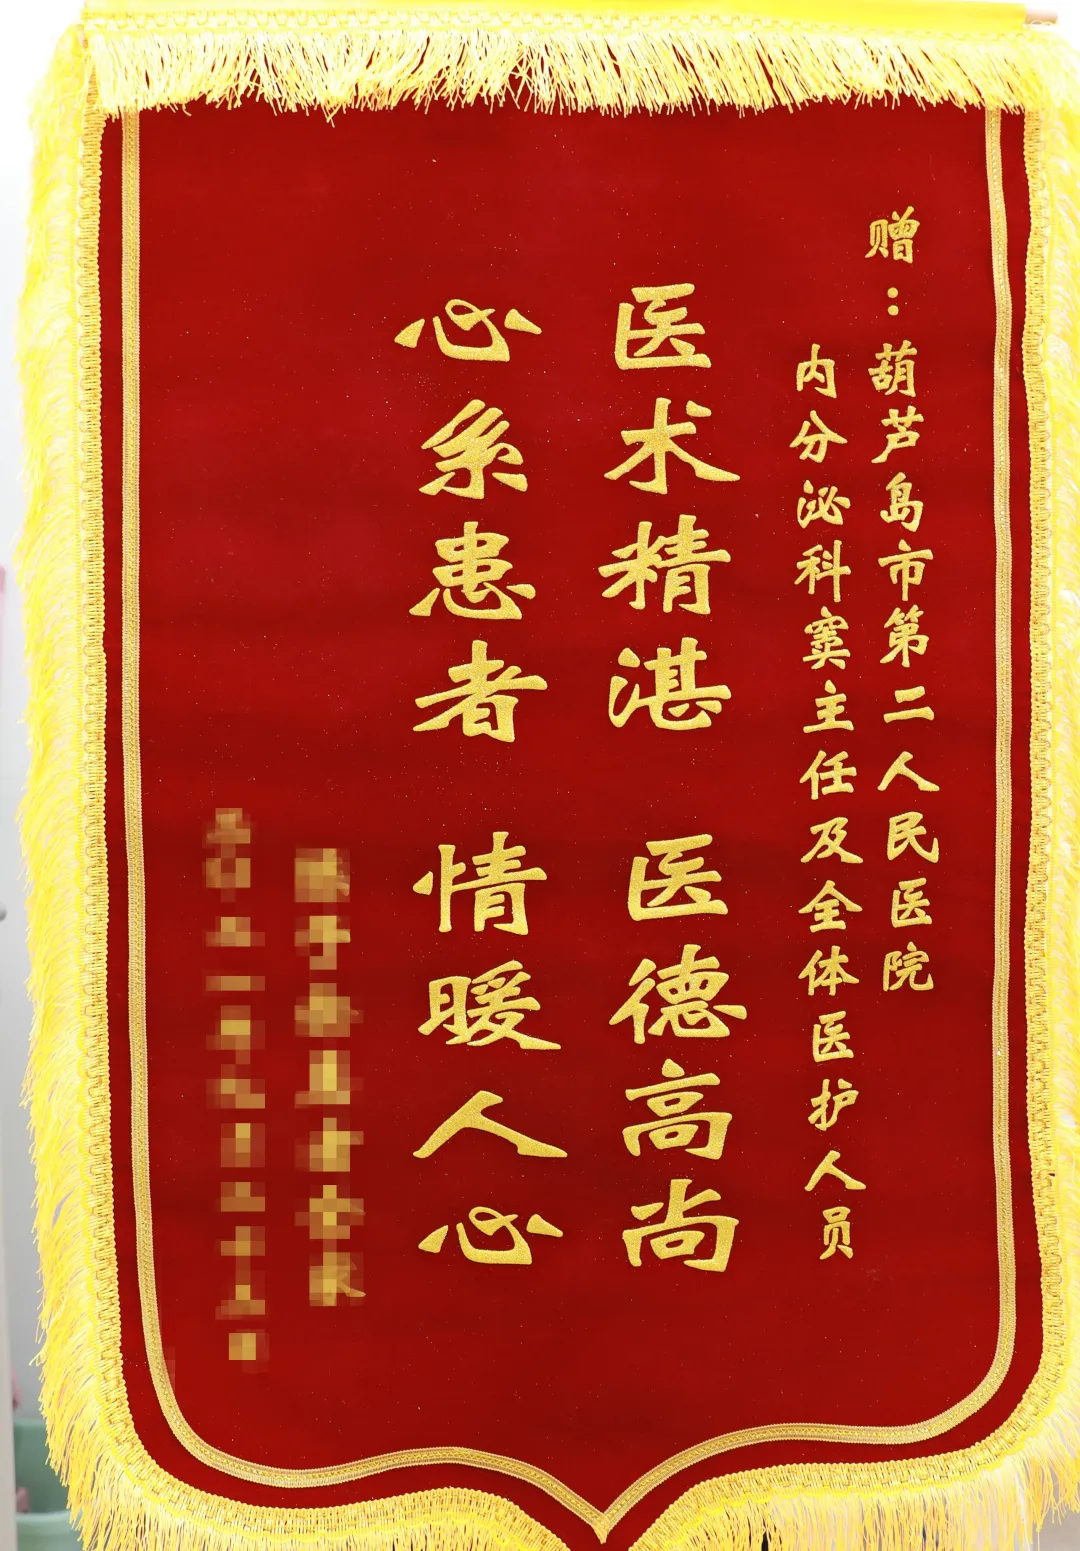 赠：葫芦岛市第二人民医院
内分泌科窦主任及全体医护人员
医术精湛 医德高尚
心系患者 情暖人心